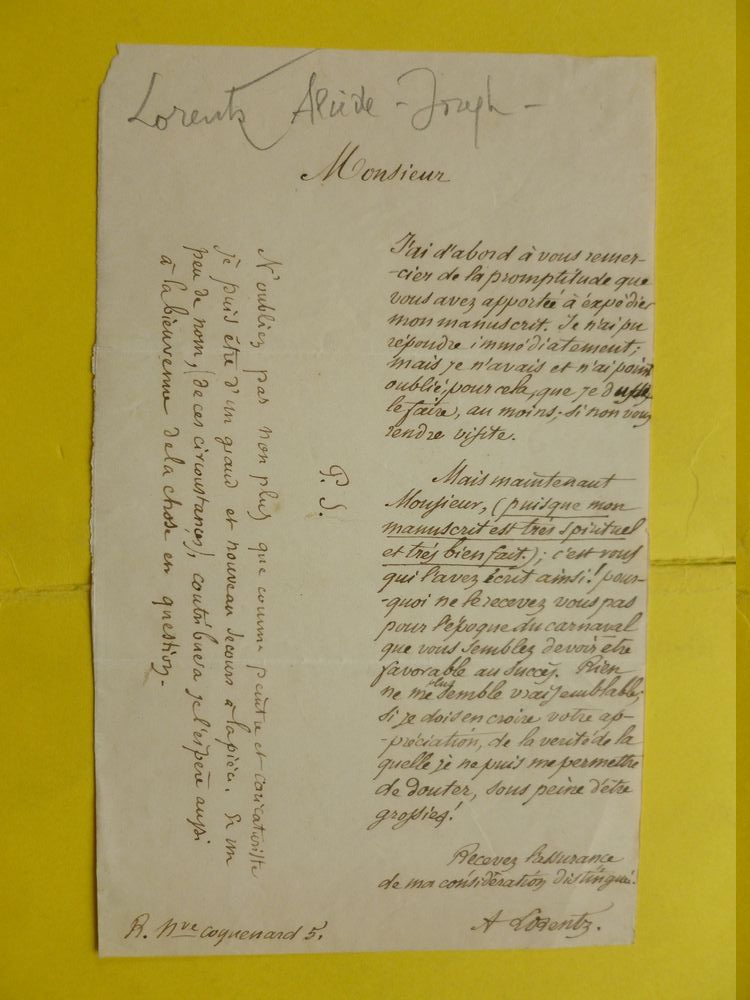 Lorentz Alcide - Joseph -
Monsieur
J'ai d'abord à vous remer-
-cier de la promptitude que
vous avez apportée à éxpédier
mon manuscrit. Je n'ai pu
répondre immédiatement;
mais je n'avais et n'ai point
oublié, pour cela, que je dusse
le faire, au moins, si non vous
rendre visite.
Mais maintenant
Monsieur, (puisque mon
manuscrit est très spirituel
et très bien fait.); c'est vous
qui l'avez écrit ainsi! pour-
-quoi ne le recevez vous pas
pour l'époque du carnaval
que vous semblez devoir être
favorable au succès. Rien
ne me plus semble vraisemblable,
si je dois en croire votre ap-
-préciation, de la verité de la
quelle je ne puis me permettre
de douter, sous peine d'être
grossier!
Recevez l'assurance
de ma considération distinguée.
A Lorentz.
P. S.
N'oubliez pas non plus que comme peintre et caricaturiste
je puis être d'un grand et nouveau secours à la pièce. Et un
peu de nom, (de ces circonstances), contribuera je l'espère aussi
à la bienvenue de la chose en question.
R. Nve coquenard 5.